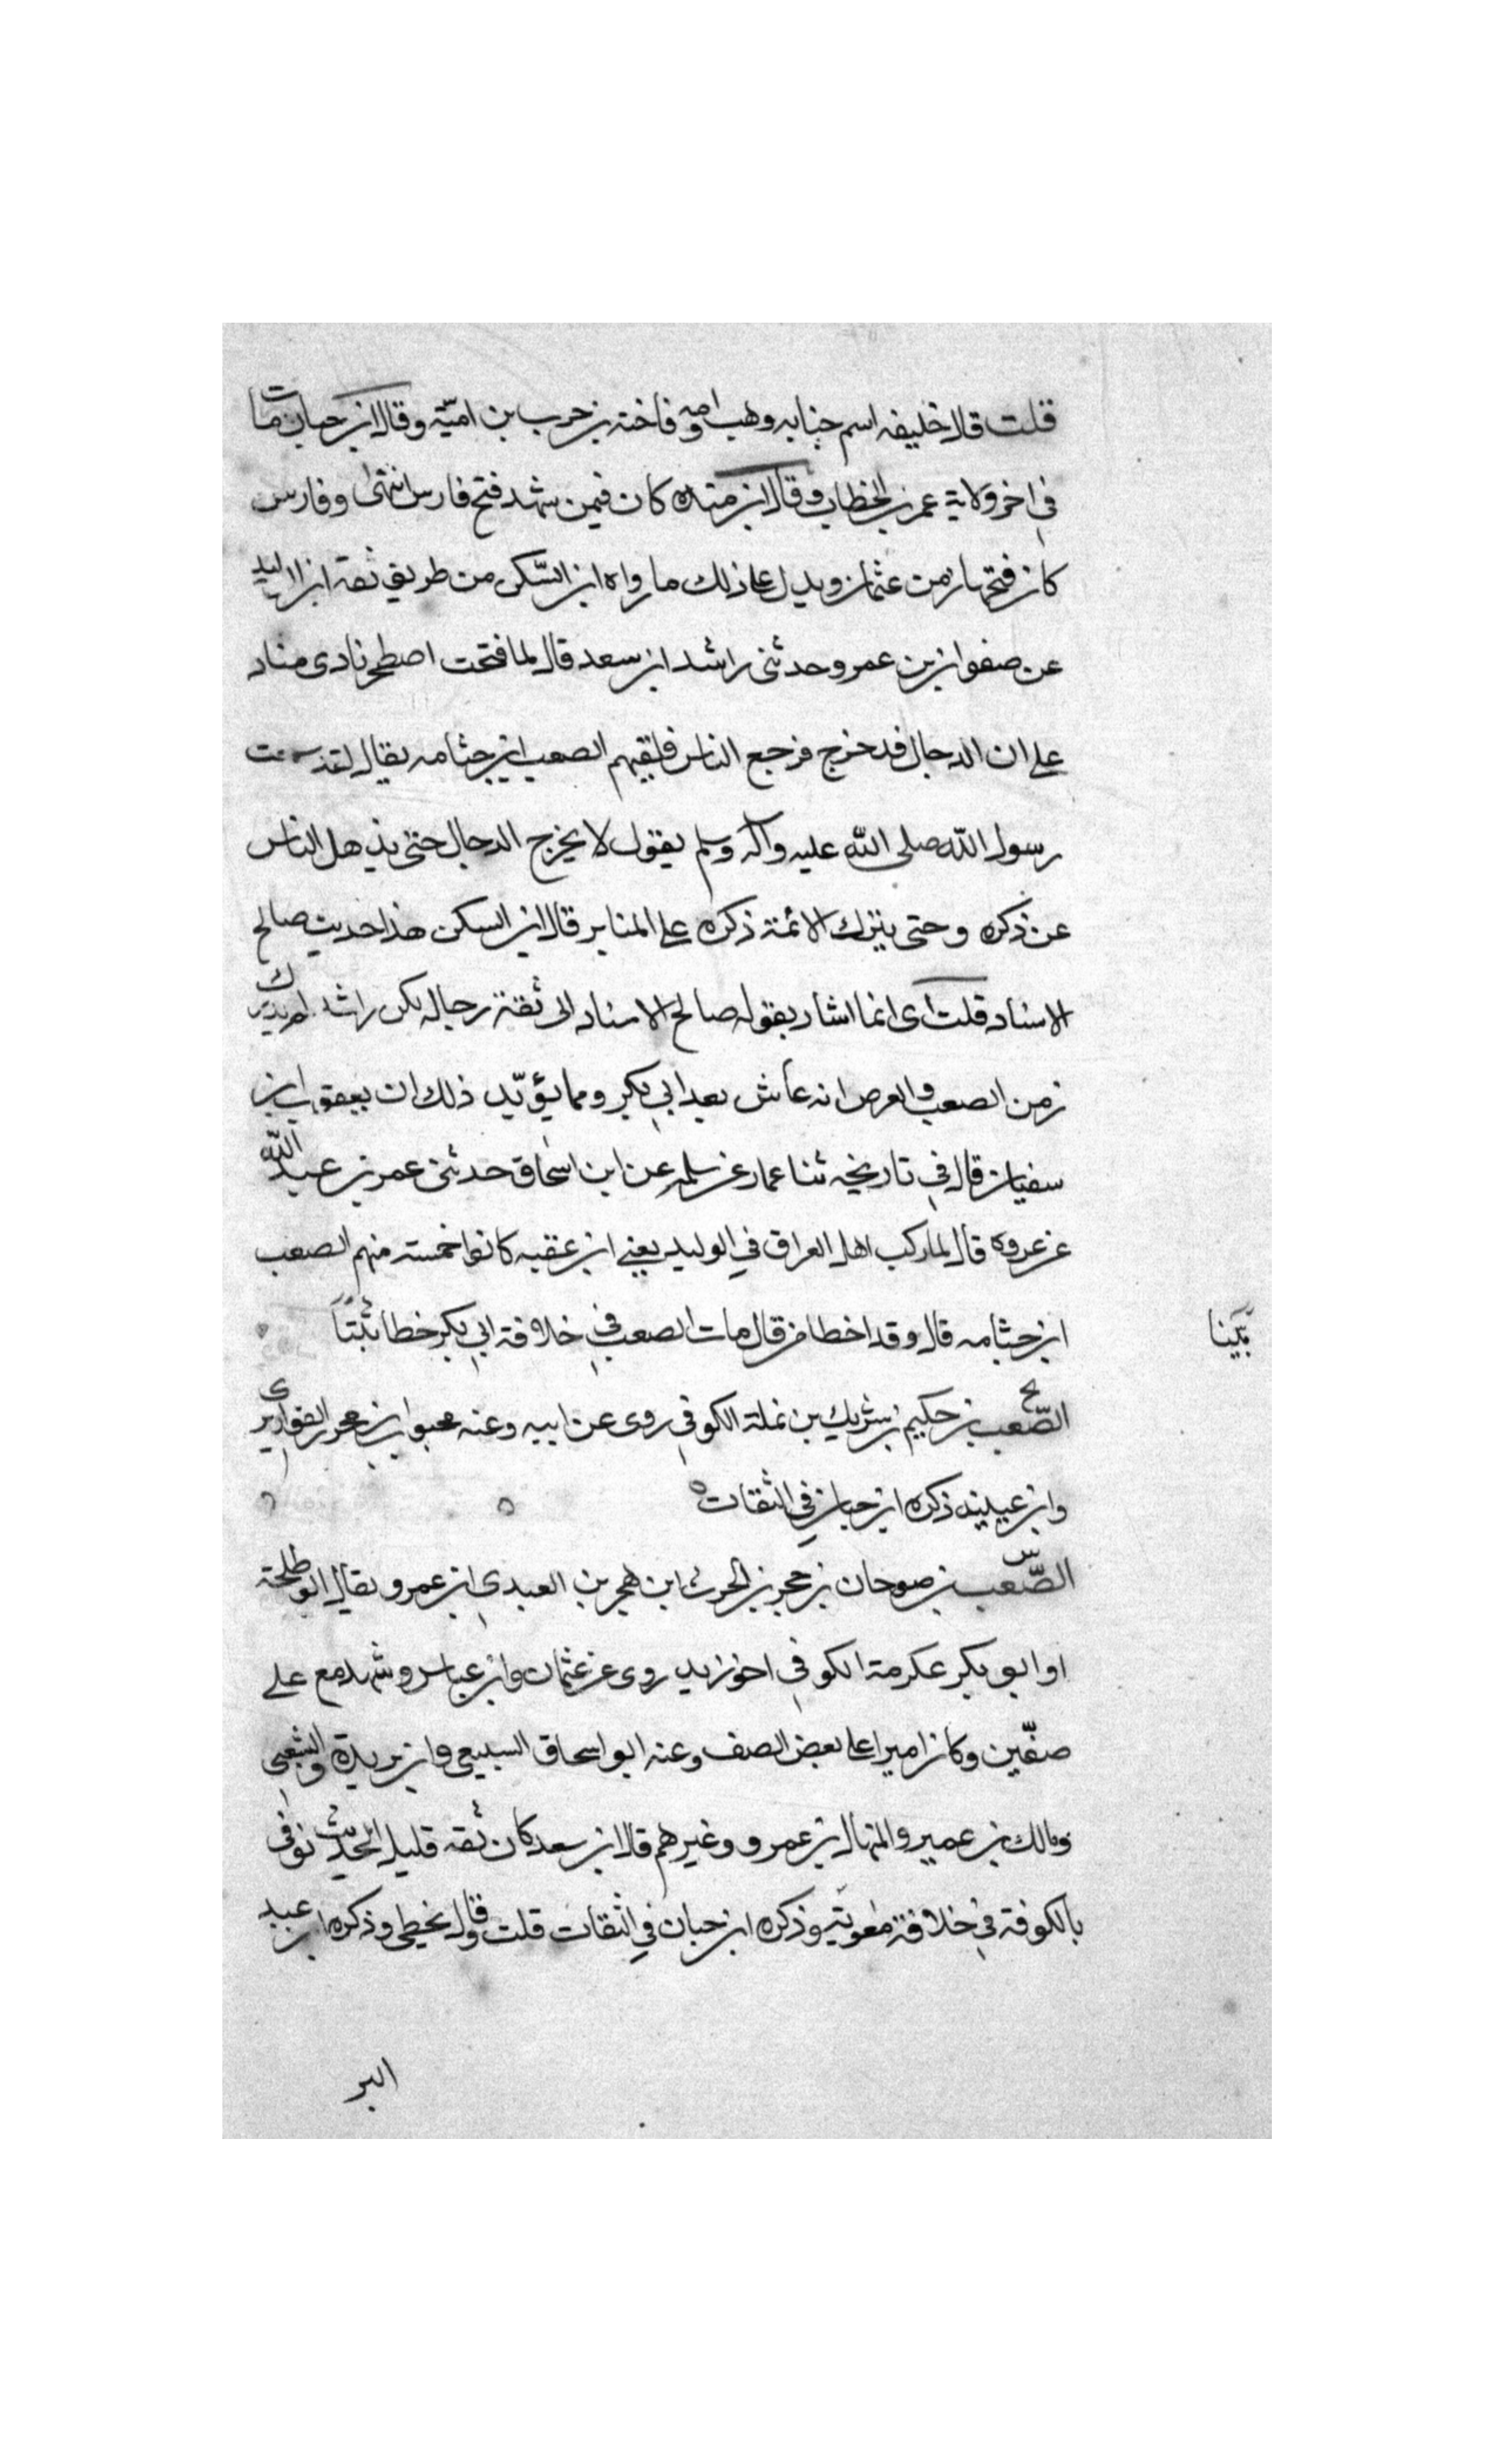 قلت قال خليفه اسم جثامه وهب وامه فاخته بنت حرب بن اميّة وقال ابن حبان مات
في اخر ولاية عمر بن الخطاب وقال ابن منده كان فيمن شهد فتح فارس انتهى وفارس
كان فتحها زمن عثمان ويدل على ذلك ما رواه ابن السّكن من طريق ثقة ابن الوليد
عن صفوان بن عمرو حدثنى راشد ابن سعد قال لما فتحت اصطخر نادى مناد
على ان الدجال قد خرج فرجع الناس فلقيهم الصعب ابن جثامه يقال لقد سمعت
رسول الله صلى الله عليه وآله وسلم يقول لا يخرج الدجال حتى يذهل الناس
عن ذكره وحتى يترك الائمة ذكره على المنابر قال ابن السكن هذا حديث صالح
الاسناد قلت اى انما اشار بقوله صالح الاسناد الى ثقة رجاله لكن راشد لم يدرك
زمن الصعب والعرض انه عاش بعد ابي بكر ومما يؤيّد ذلك ان يعقوب ابن
سفيان قال في تاريخه ثنا عمار عن سلمه عن ابن اسحاق حدثنى عمر بن عبد الله
عن عروه قال لما ركب اهل العراق في الوليد يعنى ابن عقبه كانوا خمسة منهم الصعب
ابن جثامه قال وقد اخطا من قال مات الصعب في خلافة ابي بكر خطا ثبتاً
بَيّنا
الصّعب بن حكيم بن شريك بن نملة الكوفي روى عن ابيه وعنه محبوب ابن محرز القواريرى
وابن عيينه ذكره ابن حبان في الثقات
الصّعب بن صوحان بن حجر بن الحرث ابن هجر بن العبدي ابن عمرو يقال ابو طلحة
او ابو بكر عكرمة الكوفي اخو زيد روى عن عثمان وابن عباس وشهد مع على
صفّين وكان اميرا على بعض الصف وعنه ابو اسحاق السبيعي وابن بريدة والشعبي
ومالك بن عمير والمنهال بن عمرو وغيرهم قال ابن سعد كان ثقه قليل الحديث توفي
بالكوفة في خلافة معوية وذكره ابن حبان في الثقات قلت وقال يخطى وذكره ابن عبد
البر